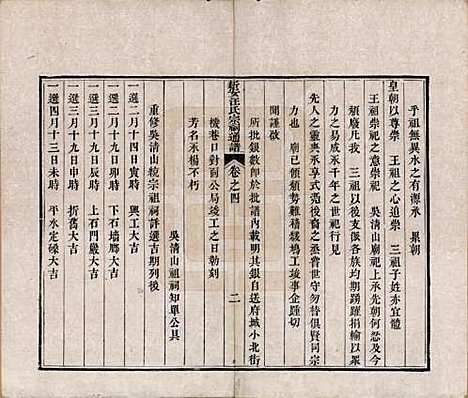 乎祖無異水之有源永 累朝
皇朝以尊崇 王祖之心追崇 三祖子姓亦宜體
王祖崇祀之意崇祀 吳清山廟祀上承先朝何忍及今
頹廢凡我 三祖以後支派各族均期踴躍捐輸以衆
力之易成永千年之世祀行見
先人之靈爽永享式後裔之丞嘗世守勿替俱賢同宗
力也 廟已傾頹勢難稽緩鳩工竣事企踵切
開謹啟
所批銀數即於批譜內載明其銀自送府城小北街
機巷口對面公局竣工之日勒刻
芳名永楊不朽
吳清山祖祠知單公具
新安汪氏宗祠通譜 卷之四 二
重修吳清山統宗祖祠評選吉期列後
一選二月十四日寅時 興工大吉
一選二月十九日辰時 下石墻腳大吉
一選三月十九日辰時 上石門嚴大吉
一選三月十九日申時 折舊大吉
一選四月十三日未時 平水定磉大吉